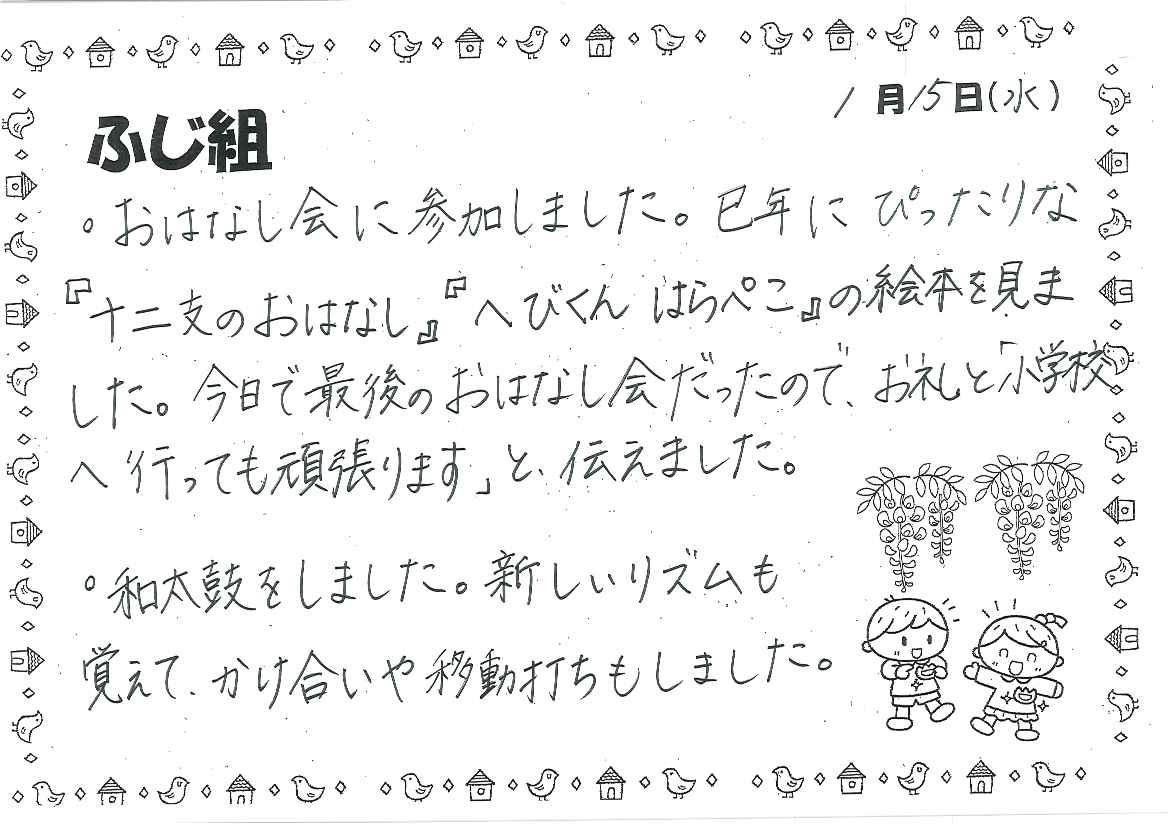 1月15日(水)
ふじ組
。おはなし会に参加しました。巳年にぴったりな
『十二支のおはなし』『へびくんはらぺこ』の絵本を見ま
した。今日で最後のおはなし会だったので、お礼と「小学校
へ行っても頑張ります」と、伝えました。
。和太鼓をしました。新しいリズムも
覚えて、かけ合いや移動打ちもしました。